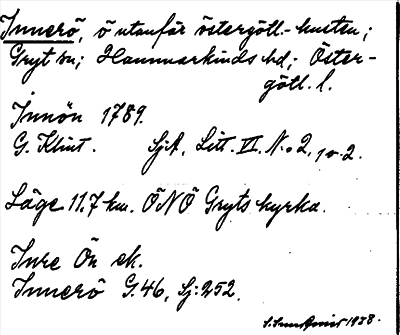 Innerö, ö utanför östergötl.-kusten;
Gryt sn; Hammarkinds hd; Öster-
götl. l.
Innön 1789.
G. Klint. SjA, Litt. VI. No 2, 1 o. 2.
Läge 11.7 km. ÖNÖ Gryts kyrka.
Inre Ön ek.
Innerö G. 46, Sj: 252.
1938.